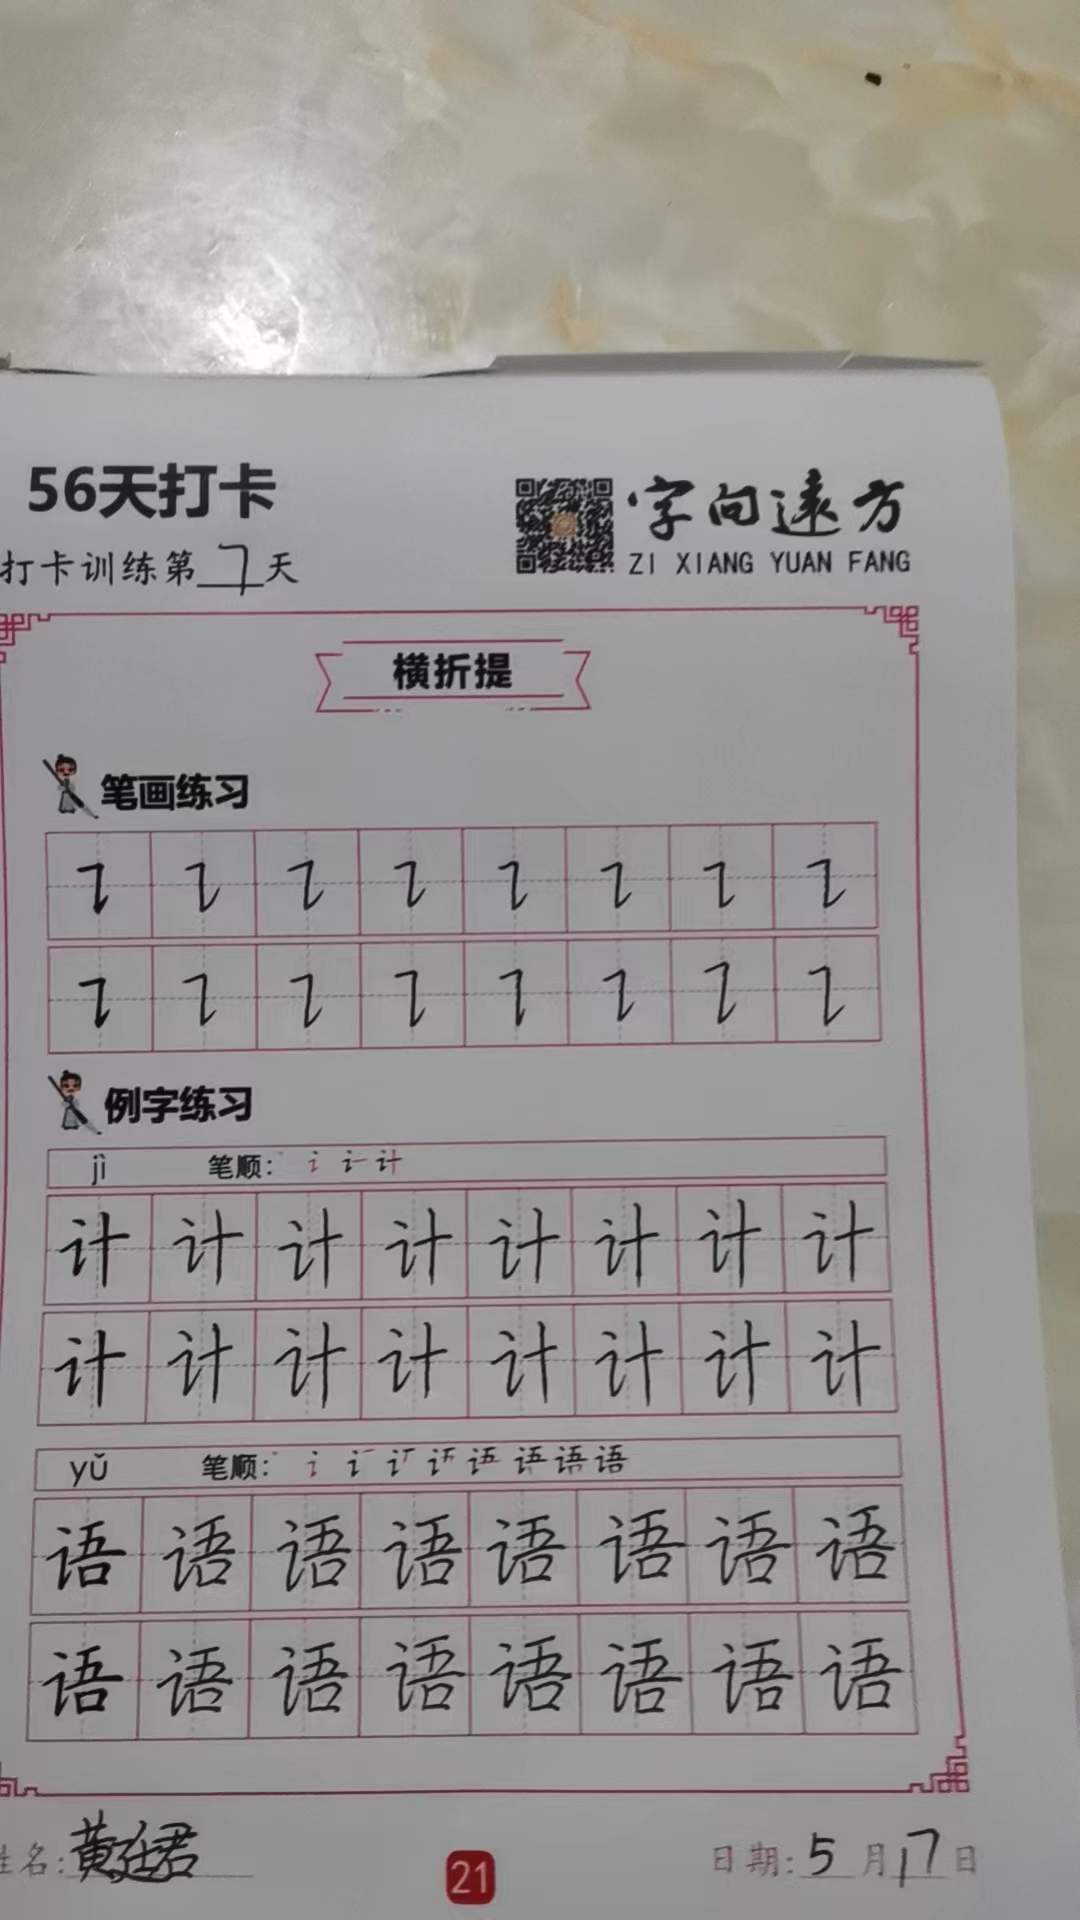 56天打卡
字向遠方
ZI XIANG YUAN FANG
打卡训练第7天
横折提
笔画练习
例字练习
jì 笔顺:
计 计 计 计 计 计 计 计
计 计 计 计 计 计 计 计
yǔ 笔顺: 语
语 语 语 语 语 语 语 语
语 语 语 语 语 语 语 语
姓名:黄廷君
21
日期:5月17日